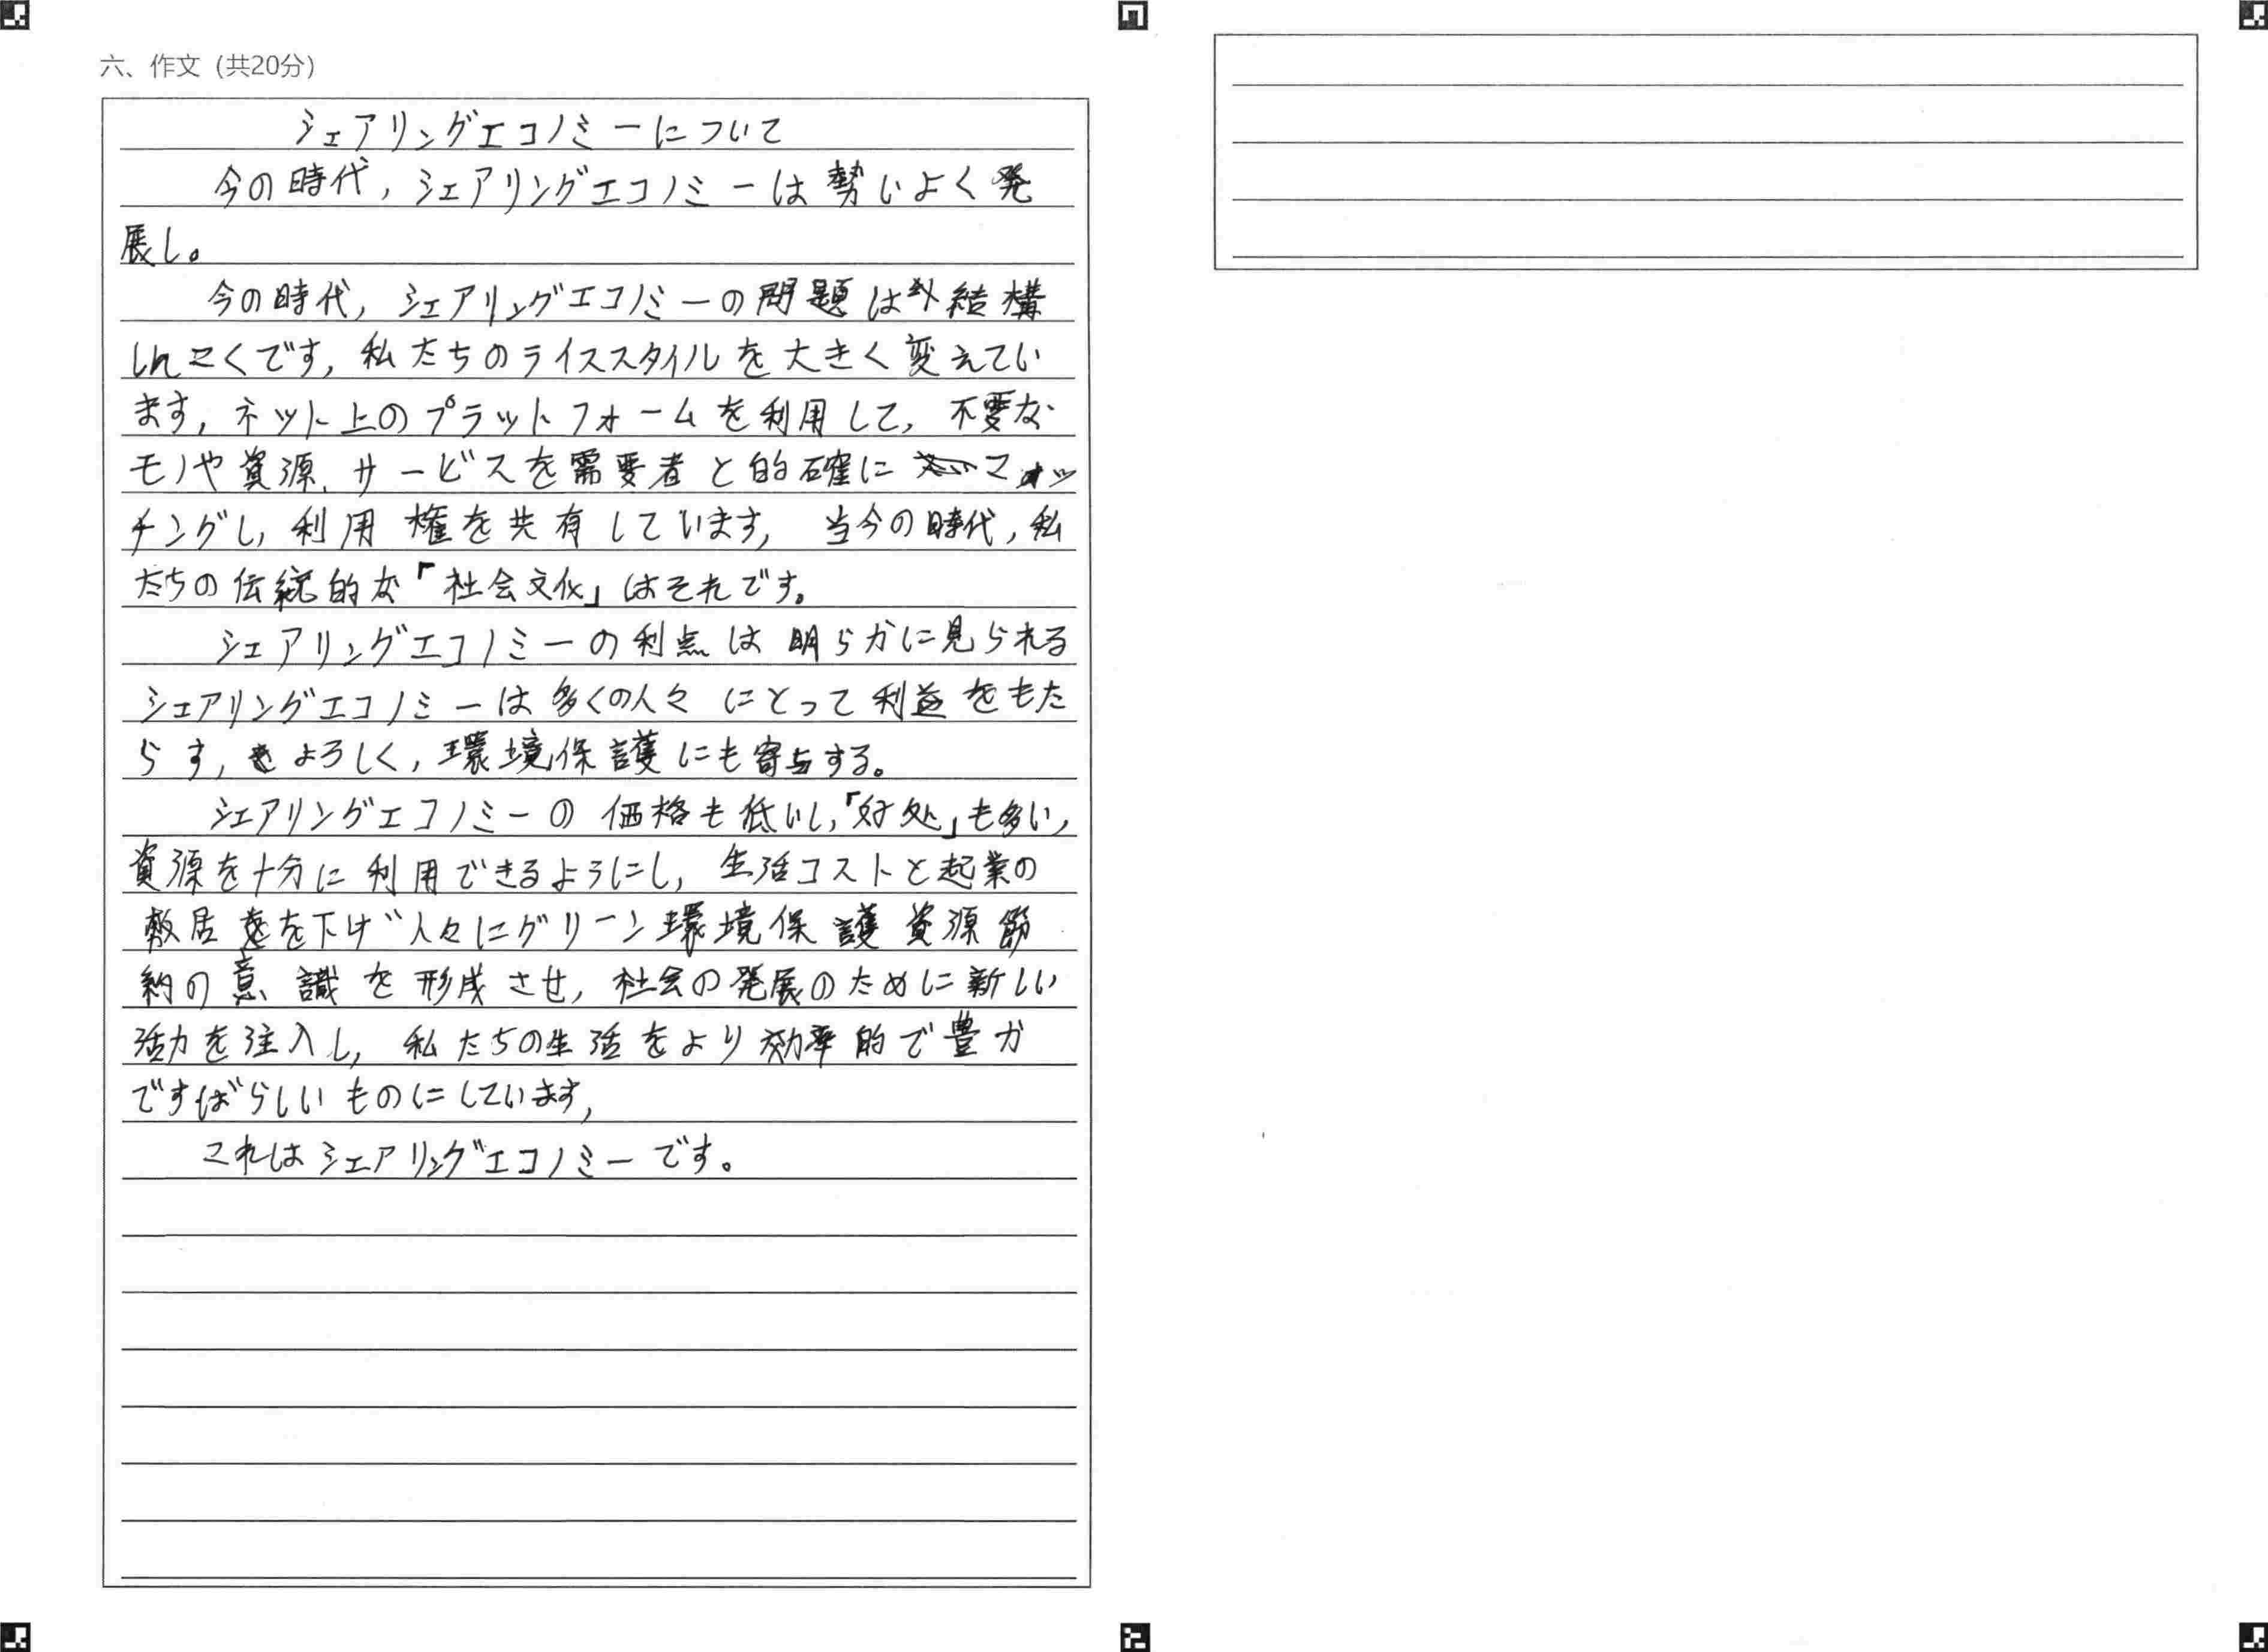 六、作文（共20分）
シェアリングエコノミーについて
今の時代，シェアリングエコノミーは勢いよく発
展し。
今の時代，シェアリングエコノミーの問題は結構
しんこくです，私たちのライススタイルを大きく変えてい
ます，ネット上のプラットフォームを利用して，不要な
モノや資源、サービスを需要者と的確にマッ
チングし，利用権を共有しています，当今の時代，私
たちの伝統的な「社会文化」はそれです。
シェアリングエコノミーの利点は明らかに見られる
シェアリングエコノミーは多くの人々にとって利益をもた
らす，よろしく，環境保護にも寄与する。
シェアリングエコノミーの価格も低いし，「好处」も多い，
資源を十分に利用できるようにし，生活コストと起業の
敷居を下げ人々にグリーン環境保護資源節
約の意識を形成させ，社会の発展のために新しい
活力を注入し，私たちの生活をより効率的で豊か
ですばらしいものにしています，
これはシェアリングエコノミーです。